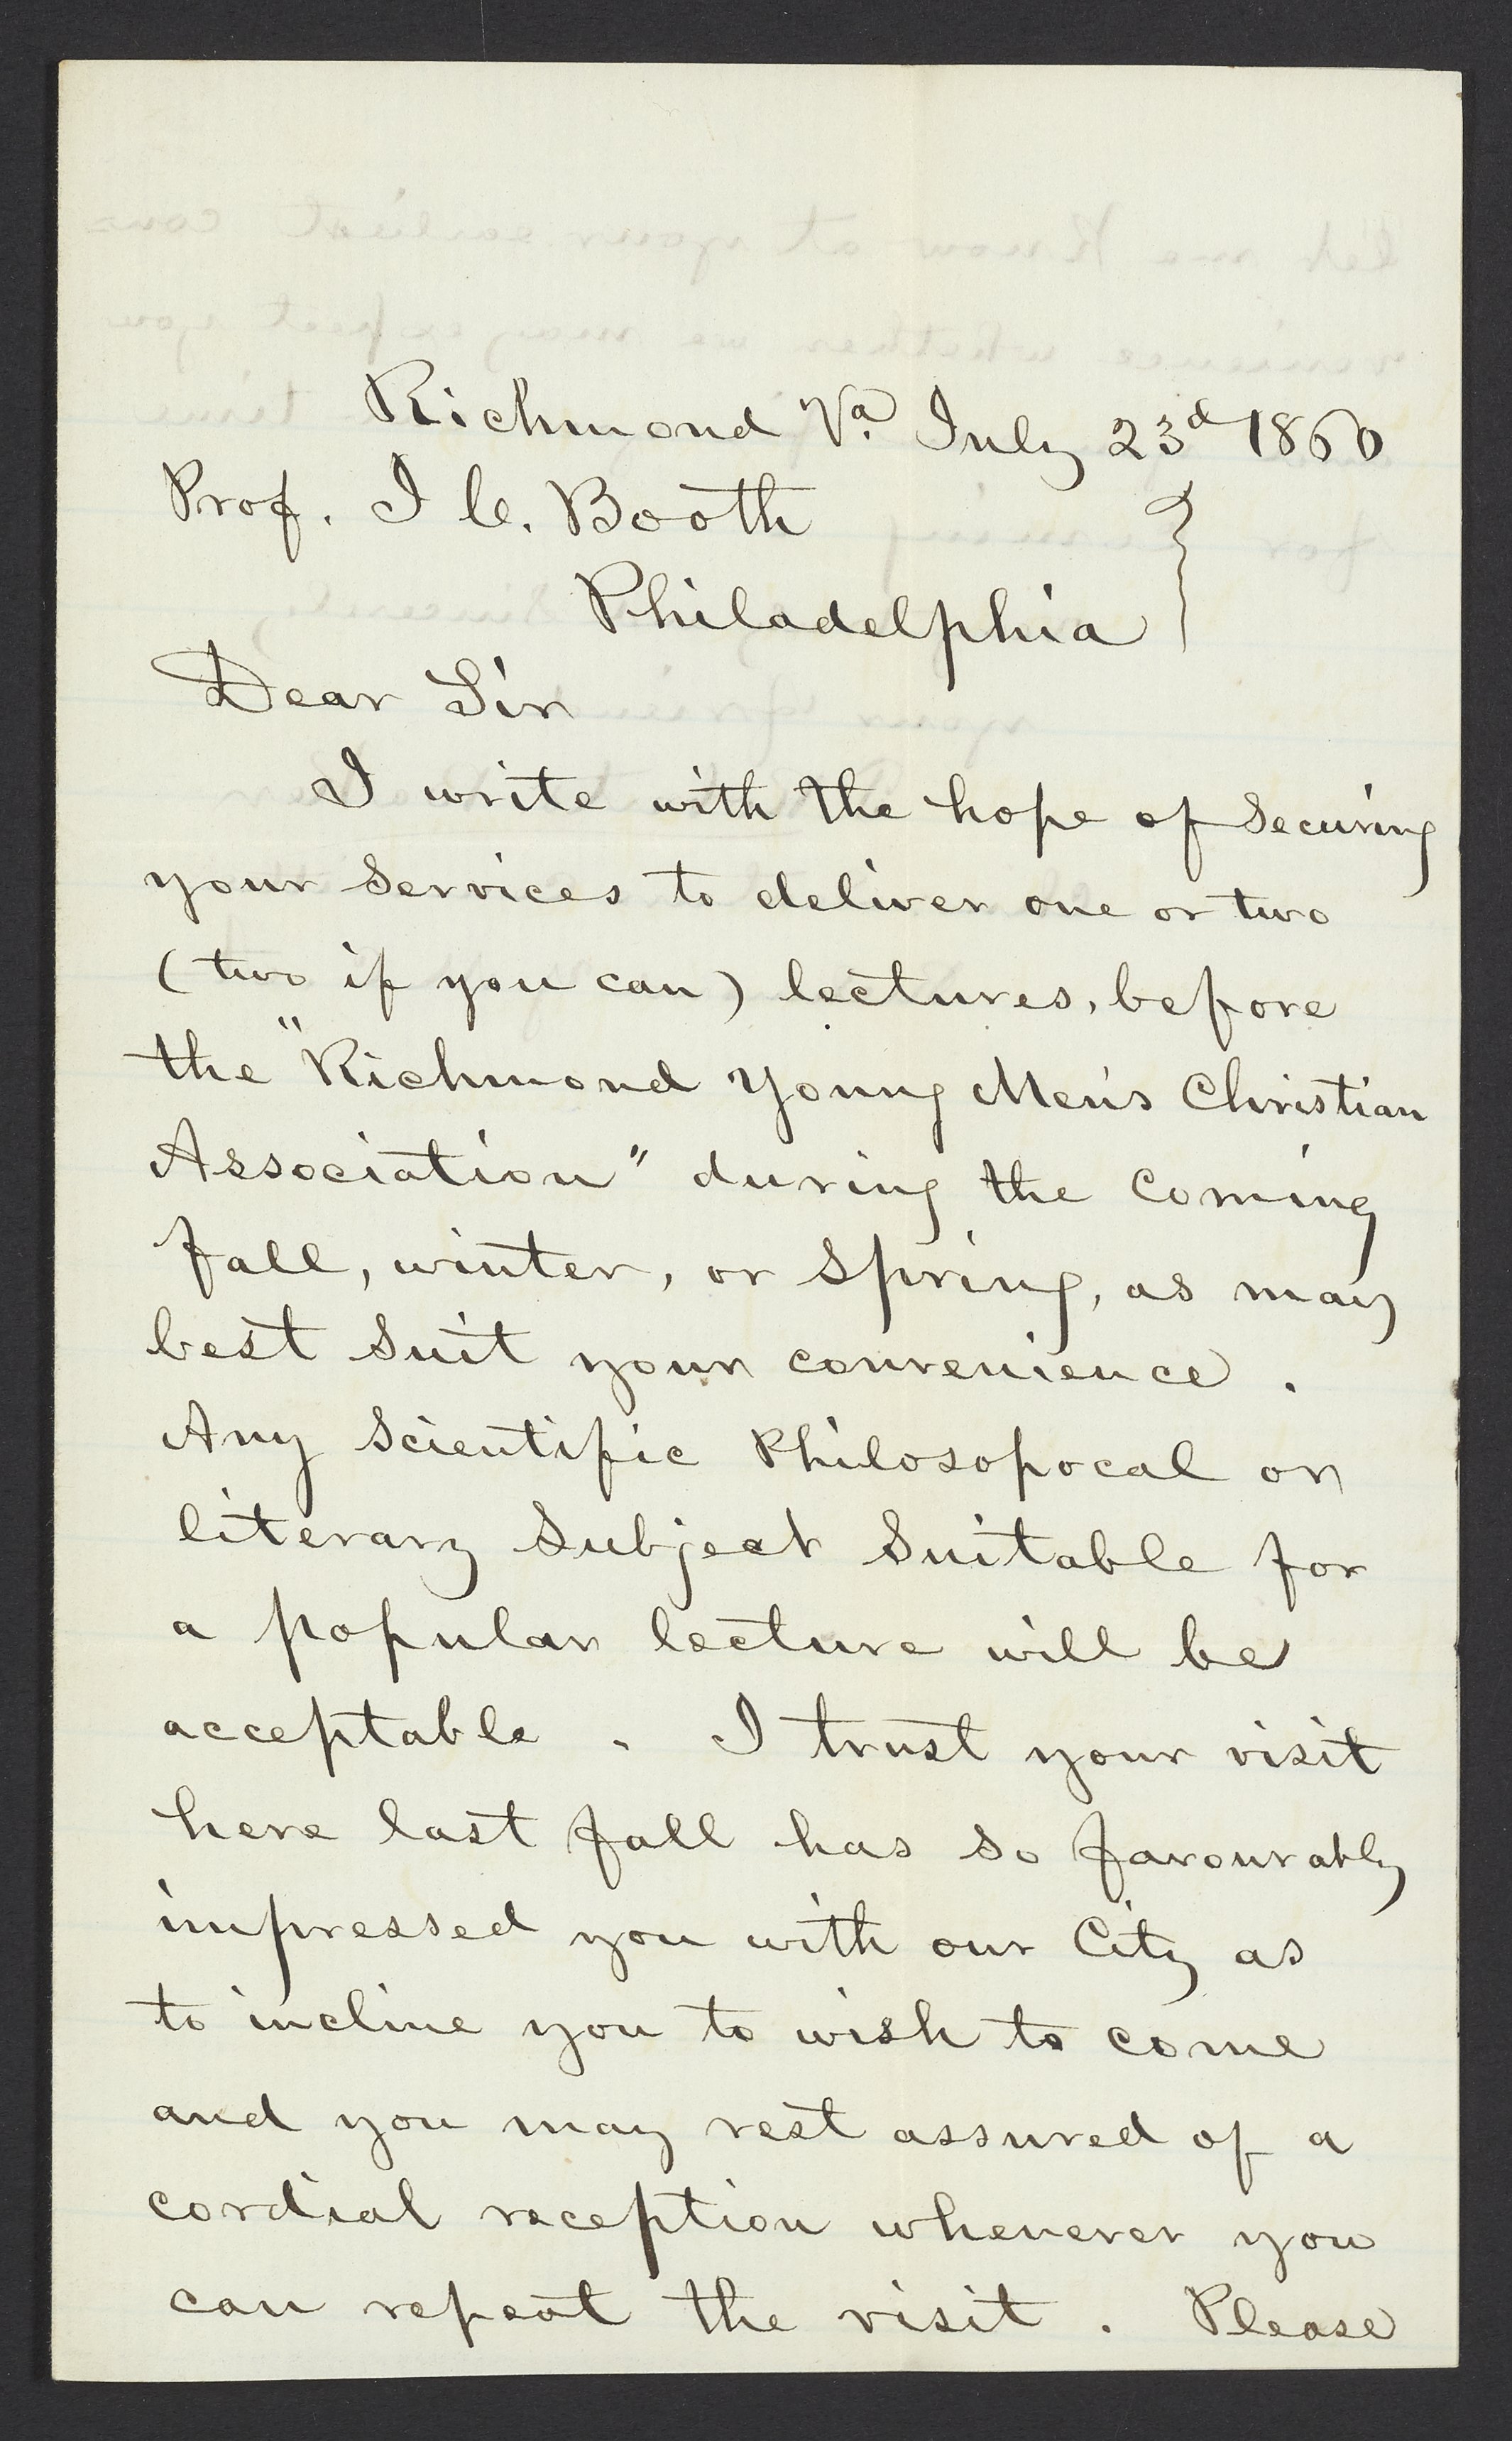 Richmond Va. July 23d 1860
Prof. J C. Booth
Philadelphia
Dear Sir
I write with the hope of securing
your services to deliver one or two
(two if you can) lectures, before
the "Richmond Young Men's Christian
Association" during the coming
fall, winter, or spring, as may
best suit your convenience.
Any scientific Philosopocal or
literary subject suitable for
a popular lecture will be
acceptable. I trust your visit
here last fall has so favourably
impressed you with our City as
to incline you to wish to come
and you may rest assured of a
cordial reception whenever you
can repeat the visit. Please